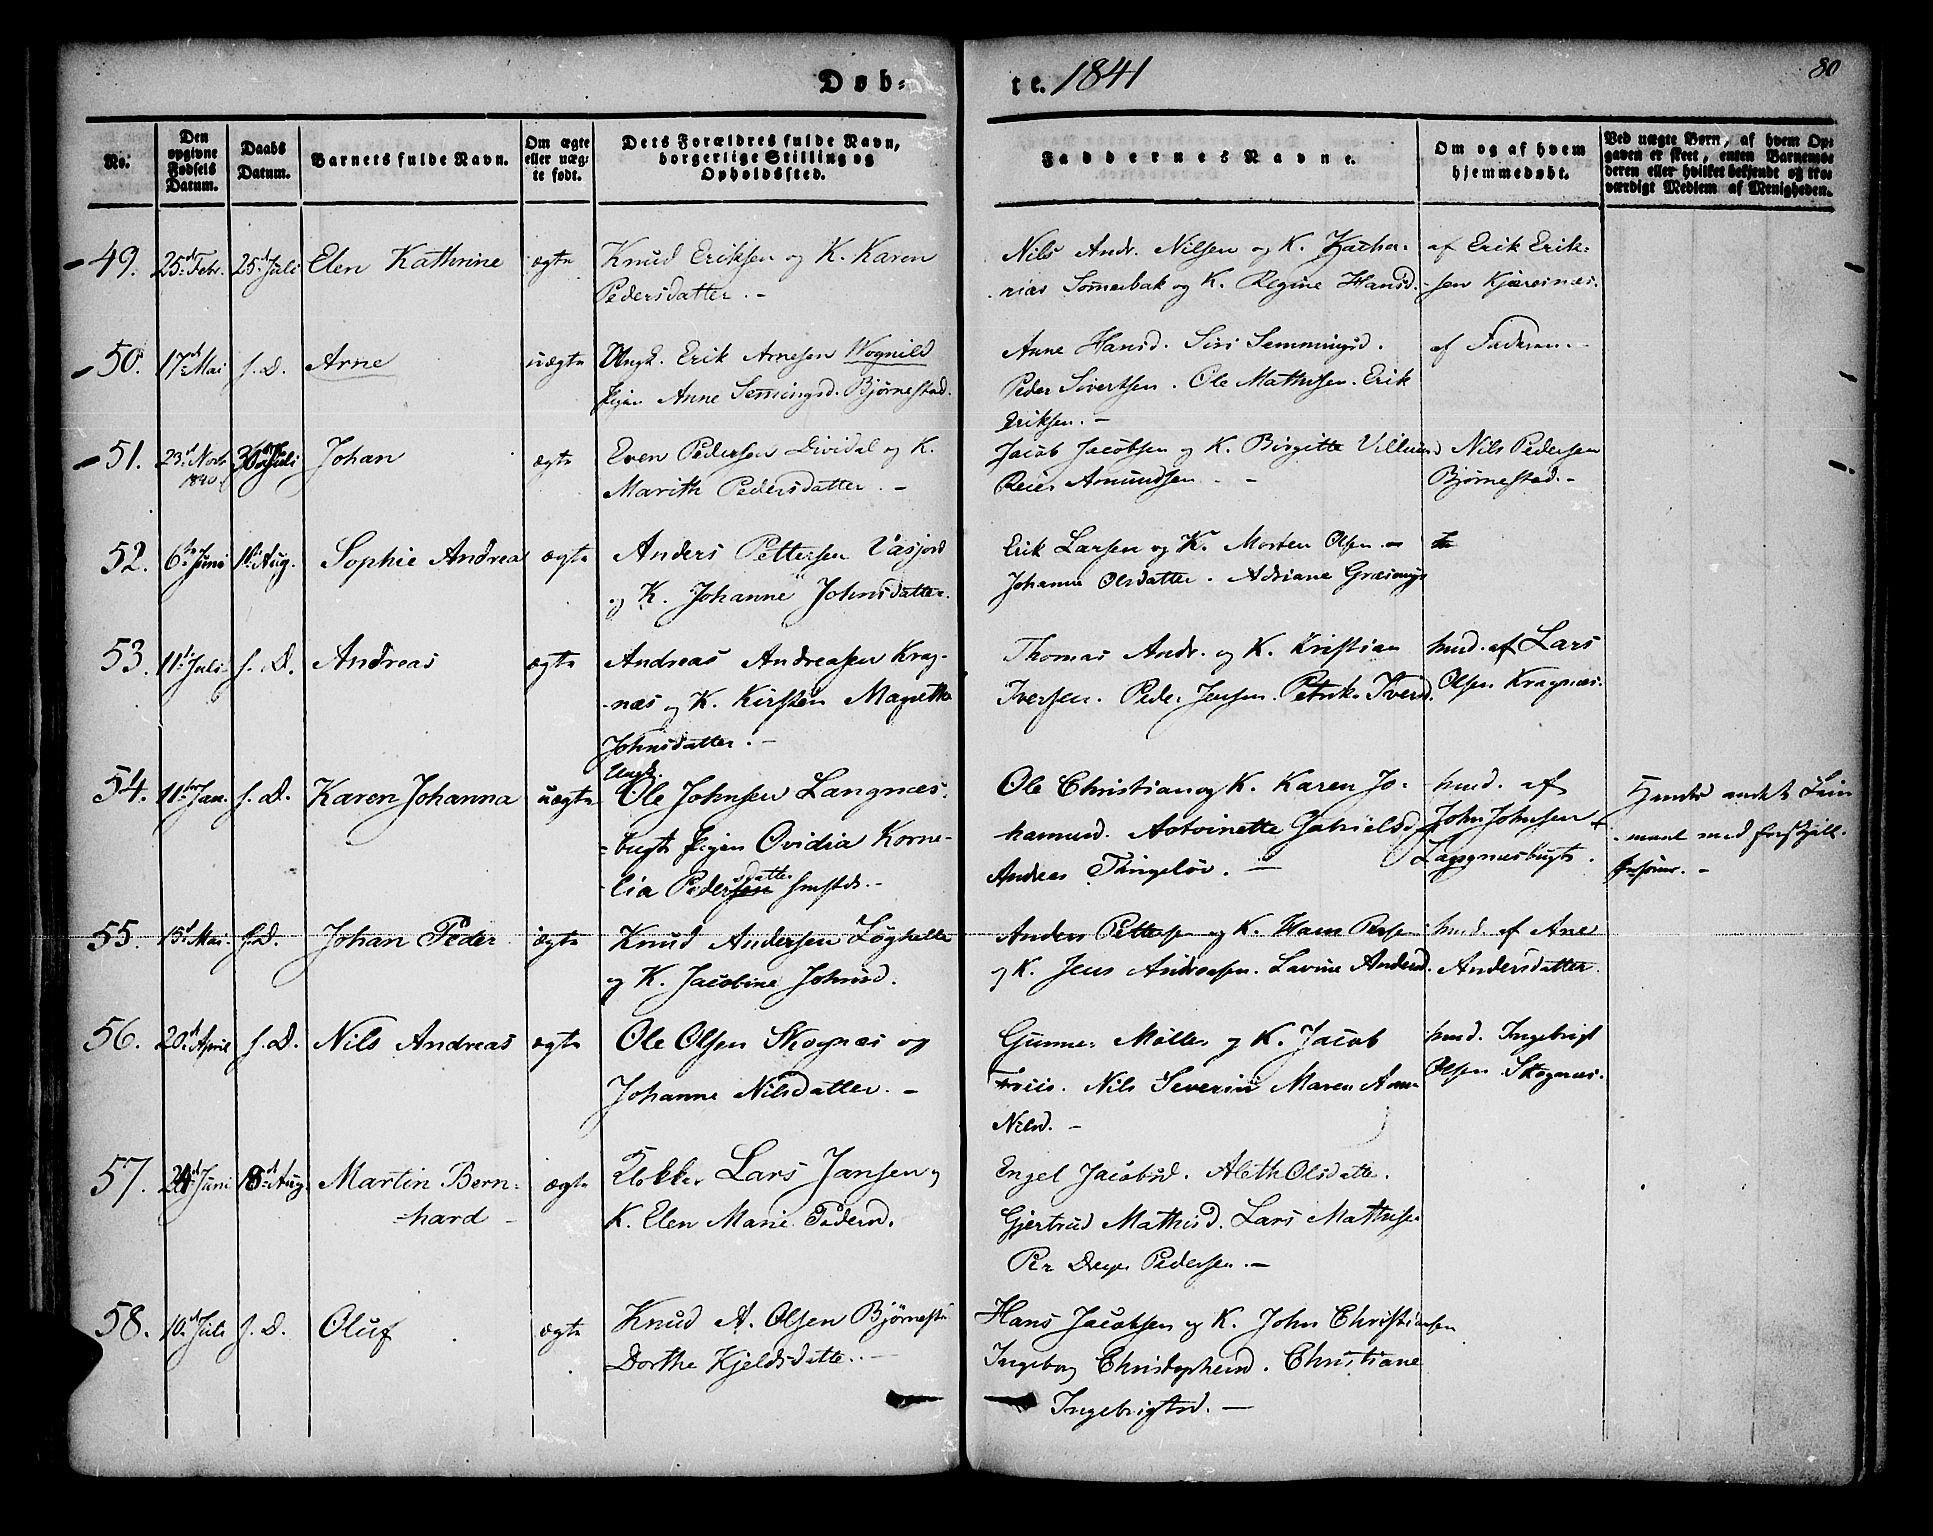 Døb-te. 1841
80
No.
Den opgivne Fødsels Datum.
Daabs Datum.
Barnets fulde Navn.
Om ægte eller uæg-te født.
Dets Forældres fulde Navn, borgerlige Stilling og Opholdssted.
Faddernes Navne.
Om og af hvem hjemmedøbt.
Ved uægte Børn, af hvem Op-gaven er skeet, enten Barnemo-deren eller hvilket bekjendt og tro-værdigt Medlem af Menigheden.
49. 25d Febr. 25d Juli Elen Kathrine ægte Knud Eriksen og K. Karen
Pedersdatter. -
Nils Andr. Nilsen og K. Zacha-
rias Somerbak og K. Regine Hansd.
af Erik Erik-
sen Kjæresnæs.
50. 17d Mai s. D. Arne uægte Ungk. Erik Arnesen Wognild
Pigen Anne Semingsd. Bjørnestad.
Anne Hansd. Siri Semmingsd.
Peder Sivertsen. Ole Mathisen. Erik
Eriksen. -
af Faderen. -
51. 23d Novb. 1840 Juli Johan ægte Even Pedersen Dividal og K.
Marith Pedersdatter. -
Jacob Jacobsen og K. Birgitte Villums
Reier Amundsen. -
Nils Pedersen
Bjørnestad. -
52. 6te Juni 1te Aug. Sophie Andrea ægte Anders Pettersen Vasjord
og K. Johanne Johnsdatter.
Erik Larsen og K. Morten Olsen. -
Johanne Olsdatter. Adriane
53. 11te Juli s. D. Andreas ægte Andreas Andreassen Krag-
næs og K. Kirsten Magrethe
Johnsdatter. -
Thomas Andr. og K. Kristian
Iversen. Peder Jensen. Petrike Iversd.
hmd. af Lars
Olsen Kragnæs.
54. 11te Jan. s. D. Karen Johanna uægte Ungk.
Ole Johnsen Langnæs-
bugt Pigen Ovidia Korne-
lia Pedersdatter
Ole Christian og K. Karen Jo-
hannesd. Antoinette Gabrielsd.
Andreas Tingeløv. -
hmd. af
John Johnsen
Langnæsbugt.
med
55. 15d Mai. s. D. Johan Peder ægte Knud Andersen Løghella
og K. Jacobine Johnsd.
Anders Pettersen og K. Hans Persen
og K. Jens Andreasen. Lavine Andersd.
hmd. af Ane
Andersdatter.
56. 20d April s. D. Nils Andreas ægte Ole Olsen Skognæs og
Johanne Nilsdatter. -
Gunner Møller og K. Jacob
Friis. Nils Severin Maren Anne
Nilsd. -
hmd. Ingebrigt
Olsen Skognæs.
57. 24d Juni 8d Aug. Martin Bern-
hard -
ægte Klokker Lars Jansen og
K. Elen Marie Pedersd.
Engel Jacobsd. Aleth Olsdatter.
Gjertrud Mathisd. Lars Mathisen
Per Dreyer Pedersen. -
58. 10d Juli s. D. Oluf ægte Knud A. Olsen Bjørnestad
Dorthe Kjeldsdatter. -
Hans Jacobsen og K. John Christiansen
Ingeborg Christophersd. Christiane
Ingebrigtsd. -